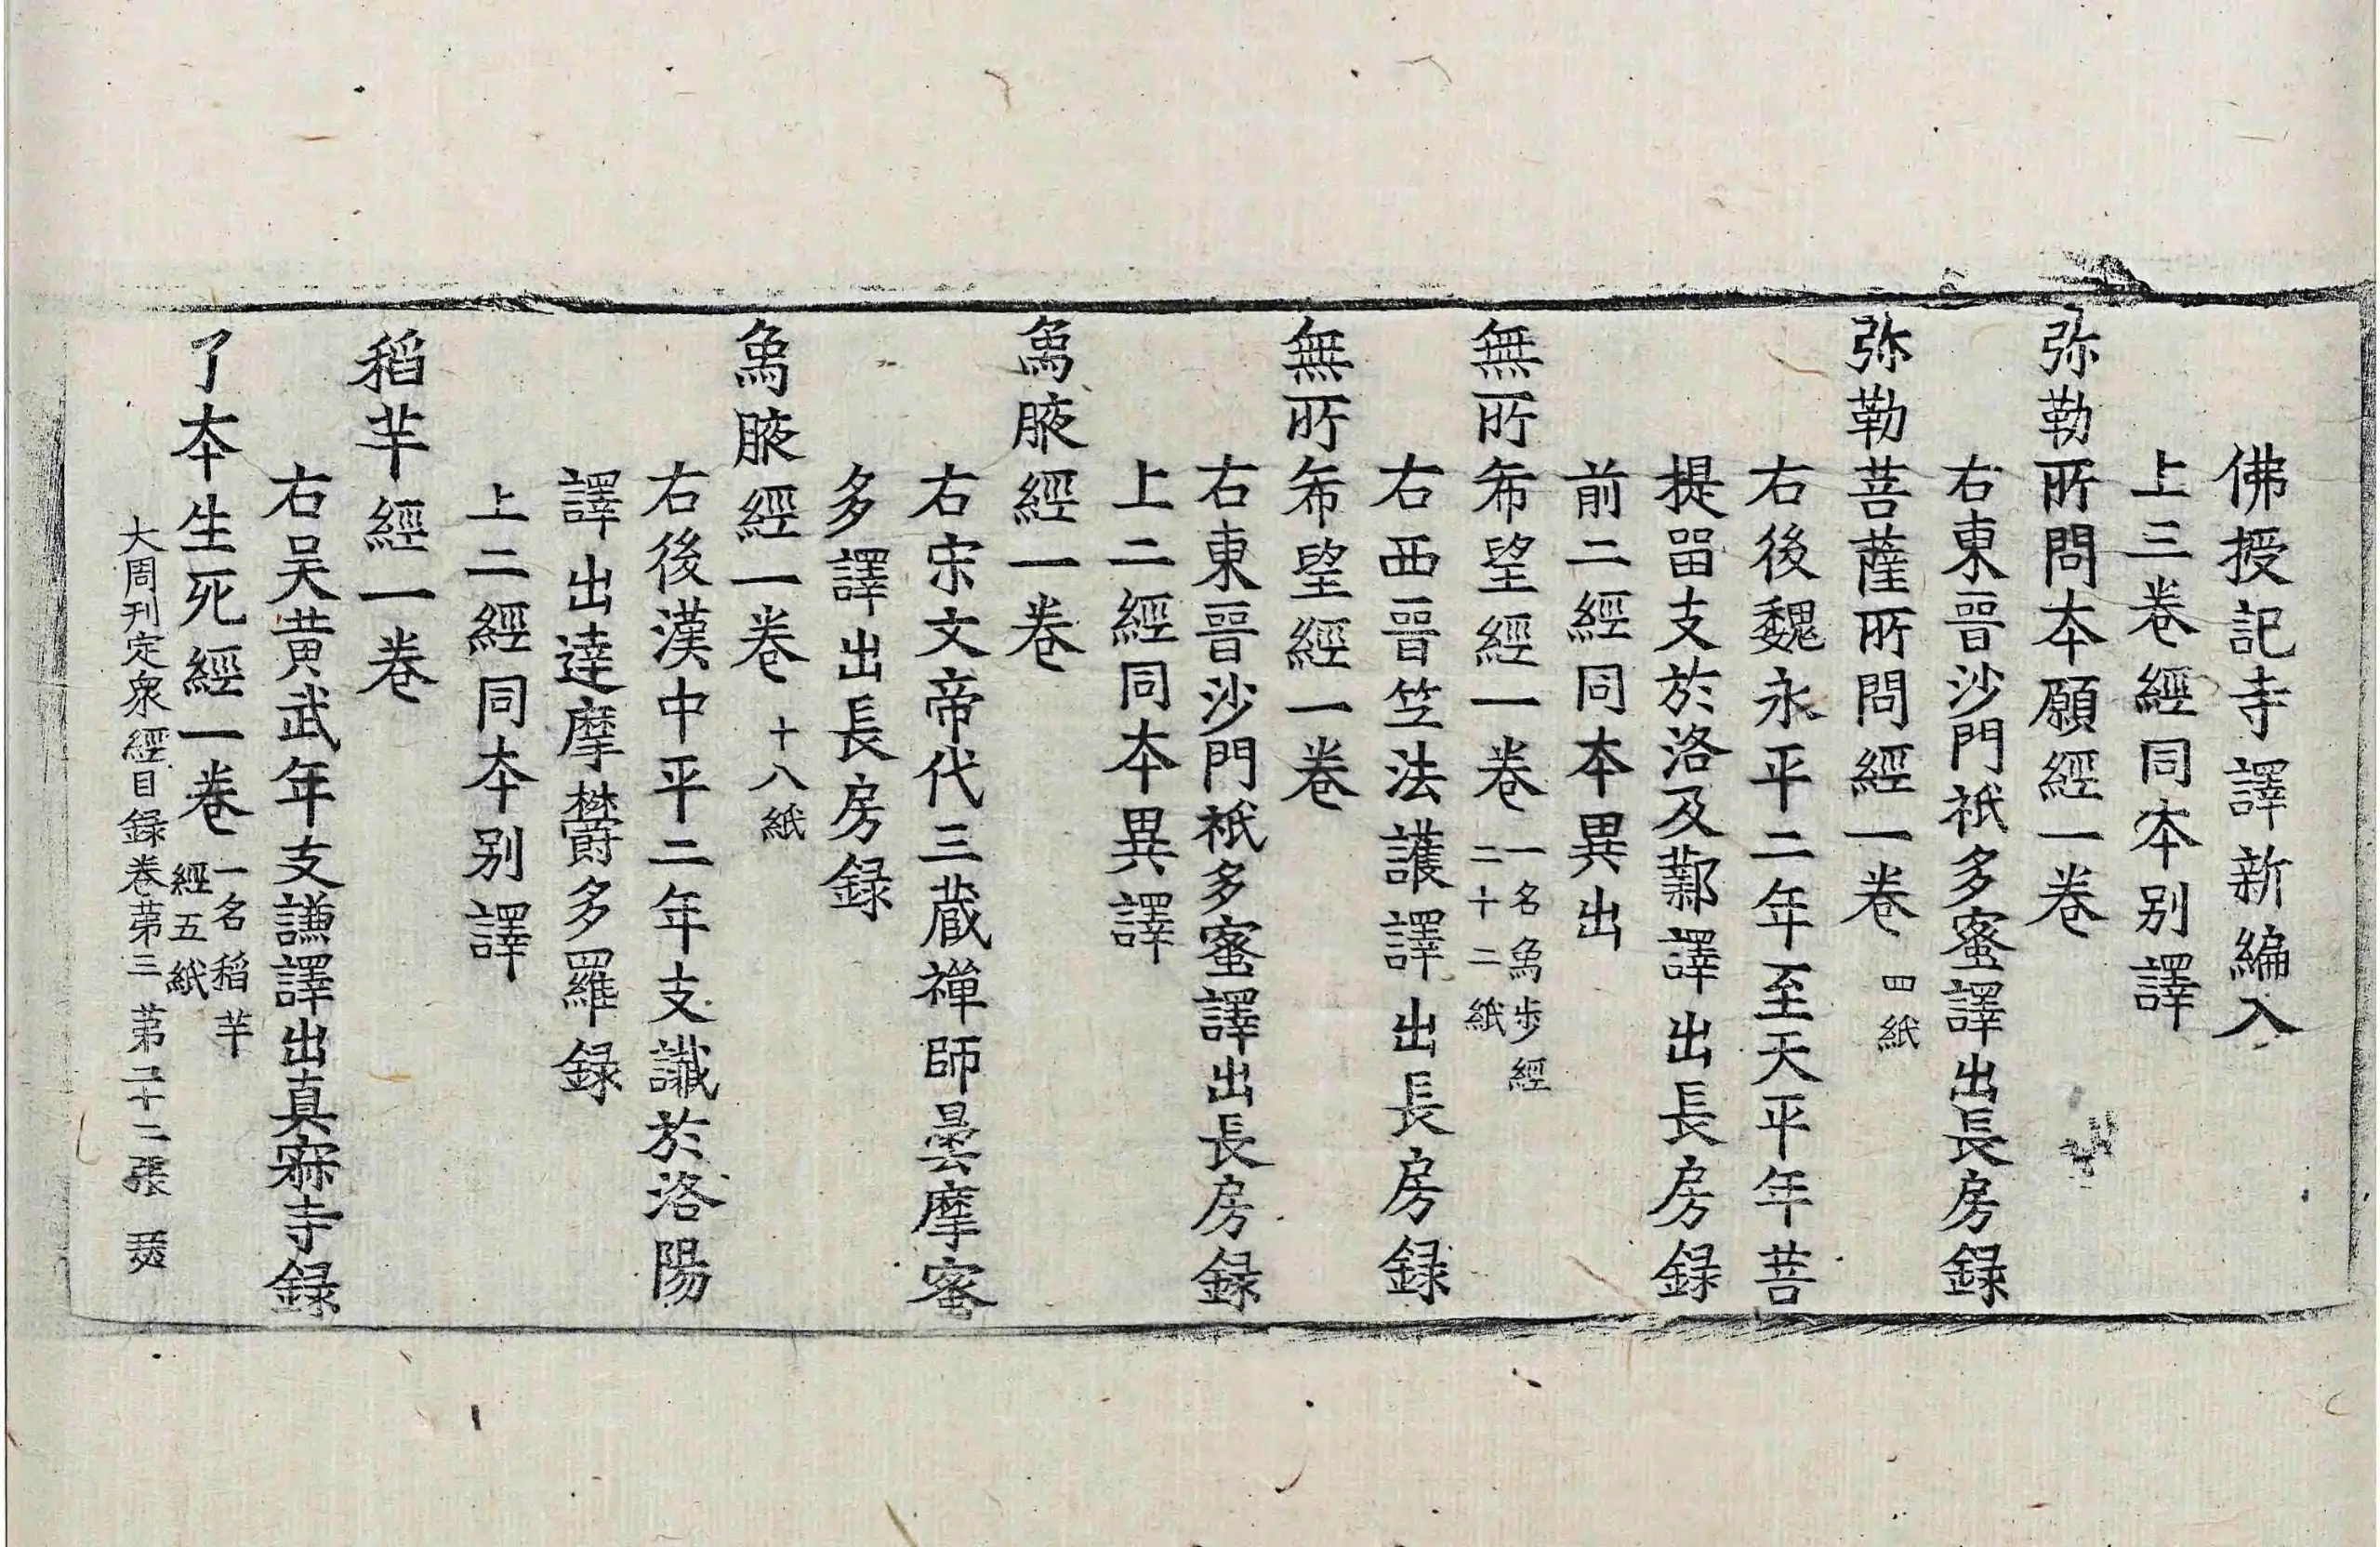 佛授記寺譯新編入
上三卷經同本别譯
弥勒所問本願經一卷
右東晉沙門祇多蜜譯出長房録
弥勒菩薩所問經一卷 四紙
右後魏永平二年至天平年菩
提留支於洛及鄴譯出長房録
前二經同本異出
無所希望經一卷 一名象歩經
二十二紙
右西晉竺法護譯出長房録
無所希望經一卷
右東晉沙門祇多蜜譯出長房録
上二經同本異譯
象腋經一卷
右宋文帝代三藏禅師曇摩蜜
多譯出長房録
象腋經一卷 十八紙
右後漢中平二年支讖於洛陽
譯出達摩欝多羅録
上二經同本别譯
稻芉經一卷
右吴黄武年支謙譯出真寂寺録
了本生死經一卷 一名稻芉
經五紙
大周刊定衆經目録卷苐三 苐二十二張